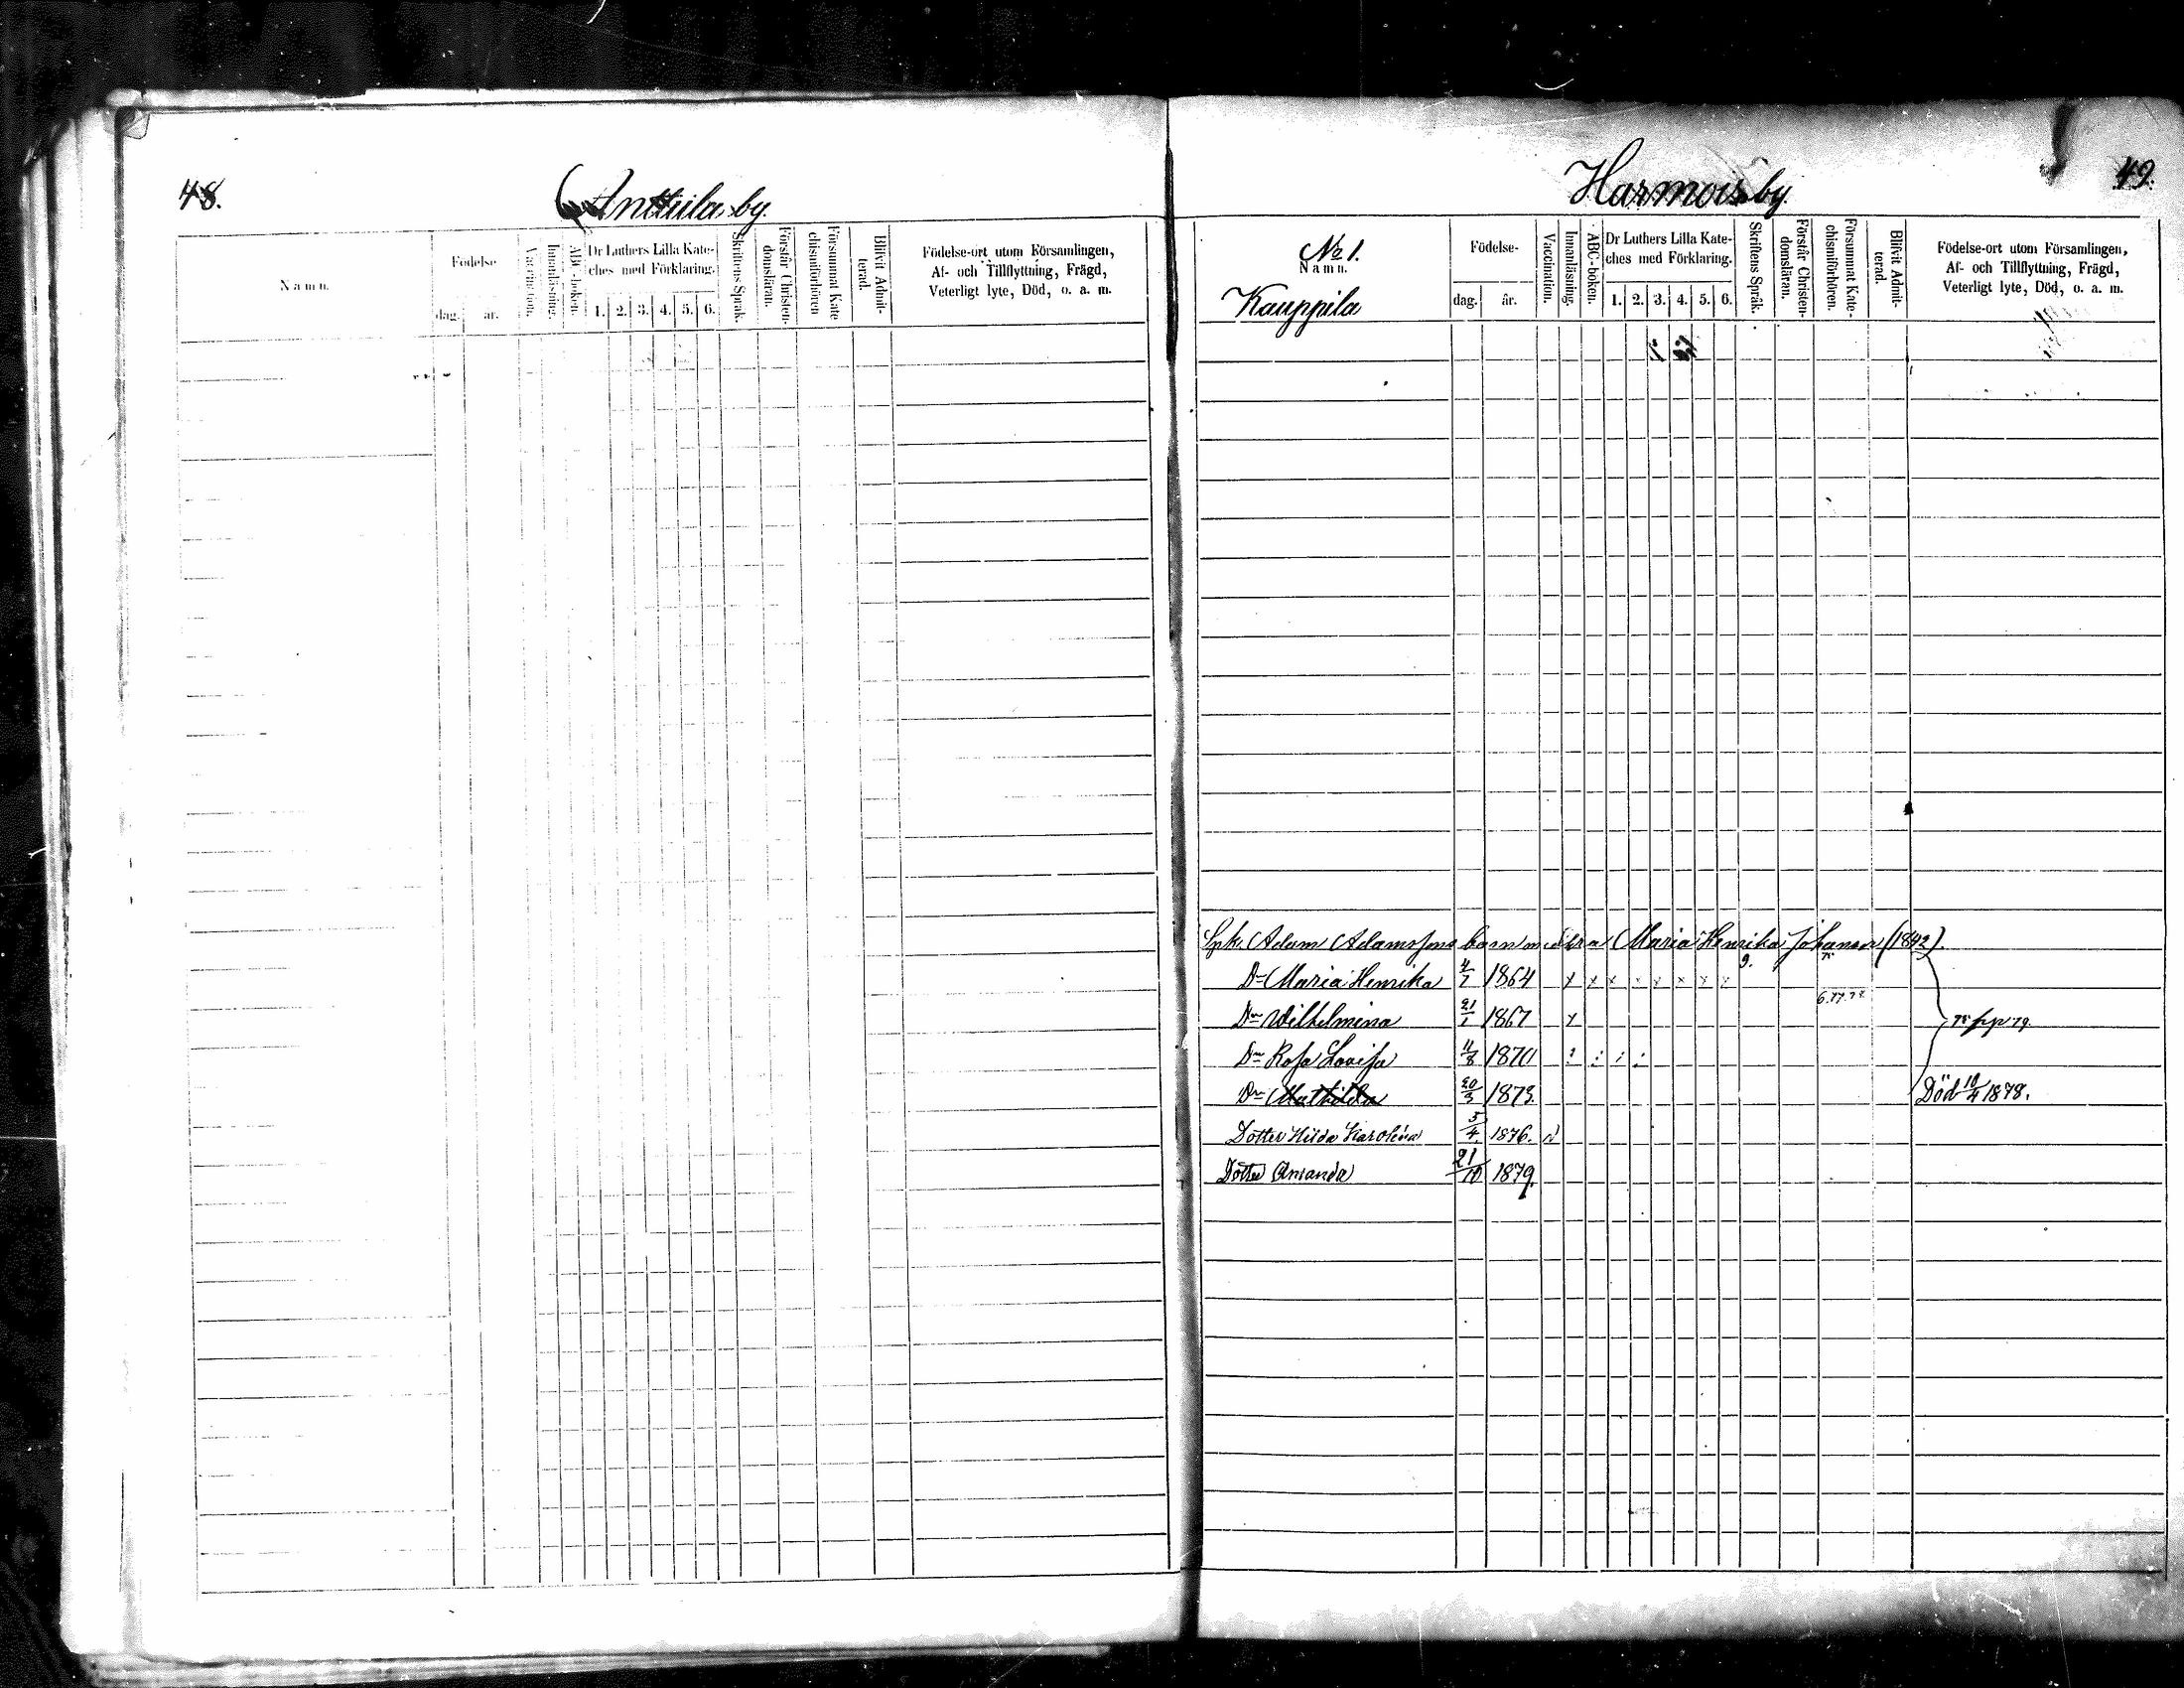 48.
Anttila by.
Namn.
Födelse
dag.
år.
Vaccination.
Innanläsning.
ABC-boken.
Dr Luthers Lilla Kate-
ches med Förklaring.
1. 2. 3. 4. 5. 6.
Skriftens Språk.
Förstår Christen-
domsläran.
Försummat Kate
chismiförhören
Blifvit Admit-
terad.
Födelse-ort utom Församlingen,
Af- och Tillflyttning, Frägd,
Veterligt lyte, Död, o. a. m.
Harmois by.
49.
No 1.
Namn.
Kauppila
Födelse-
dag.
år.
Vaccination.
Innanläsning.
ABC-boken.
Dr Luthers Lilla Kate-
ches med Förklaring.
1. 2. 3. 4. 5. 6.
Skriftens Språk.
Förstår Christen-
domsläran.
Försummat Kate-
chismiförhören.
Blifvit Admit-
terad.
Födelse-ort utom Församlingen,
Af- och Tillflyttning, Frägd,
Veterligt lyte, Död, o. a. m.
Adam Adamssons barn Maria Henrika (1842)
Dr Maria Henrika 4/7 1864 x x x x x x x x
6.77.78
Dr Wilhelmina 21/1 1867 x
pp 79.
Dr Rosa Lovisa 11/8 1870
Dr Mathilda 20/3 1873. Död 10/4 1878.
Dotter Hilda Karolina 5/4 1876.
Dotter Amanda 21/10 1879.